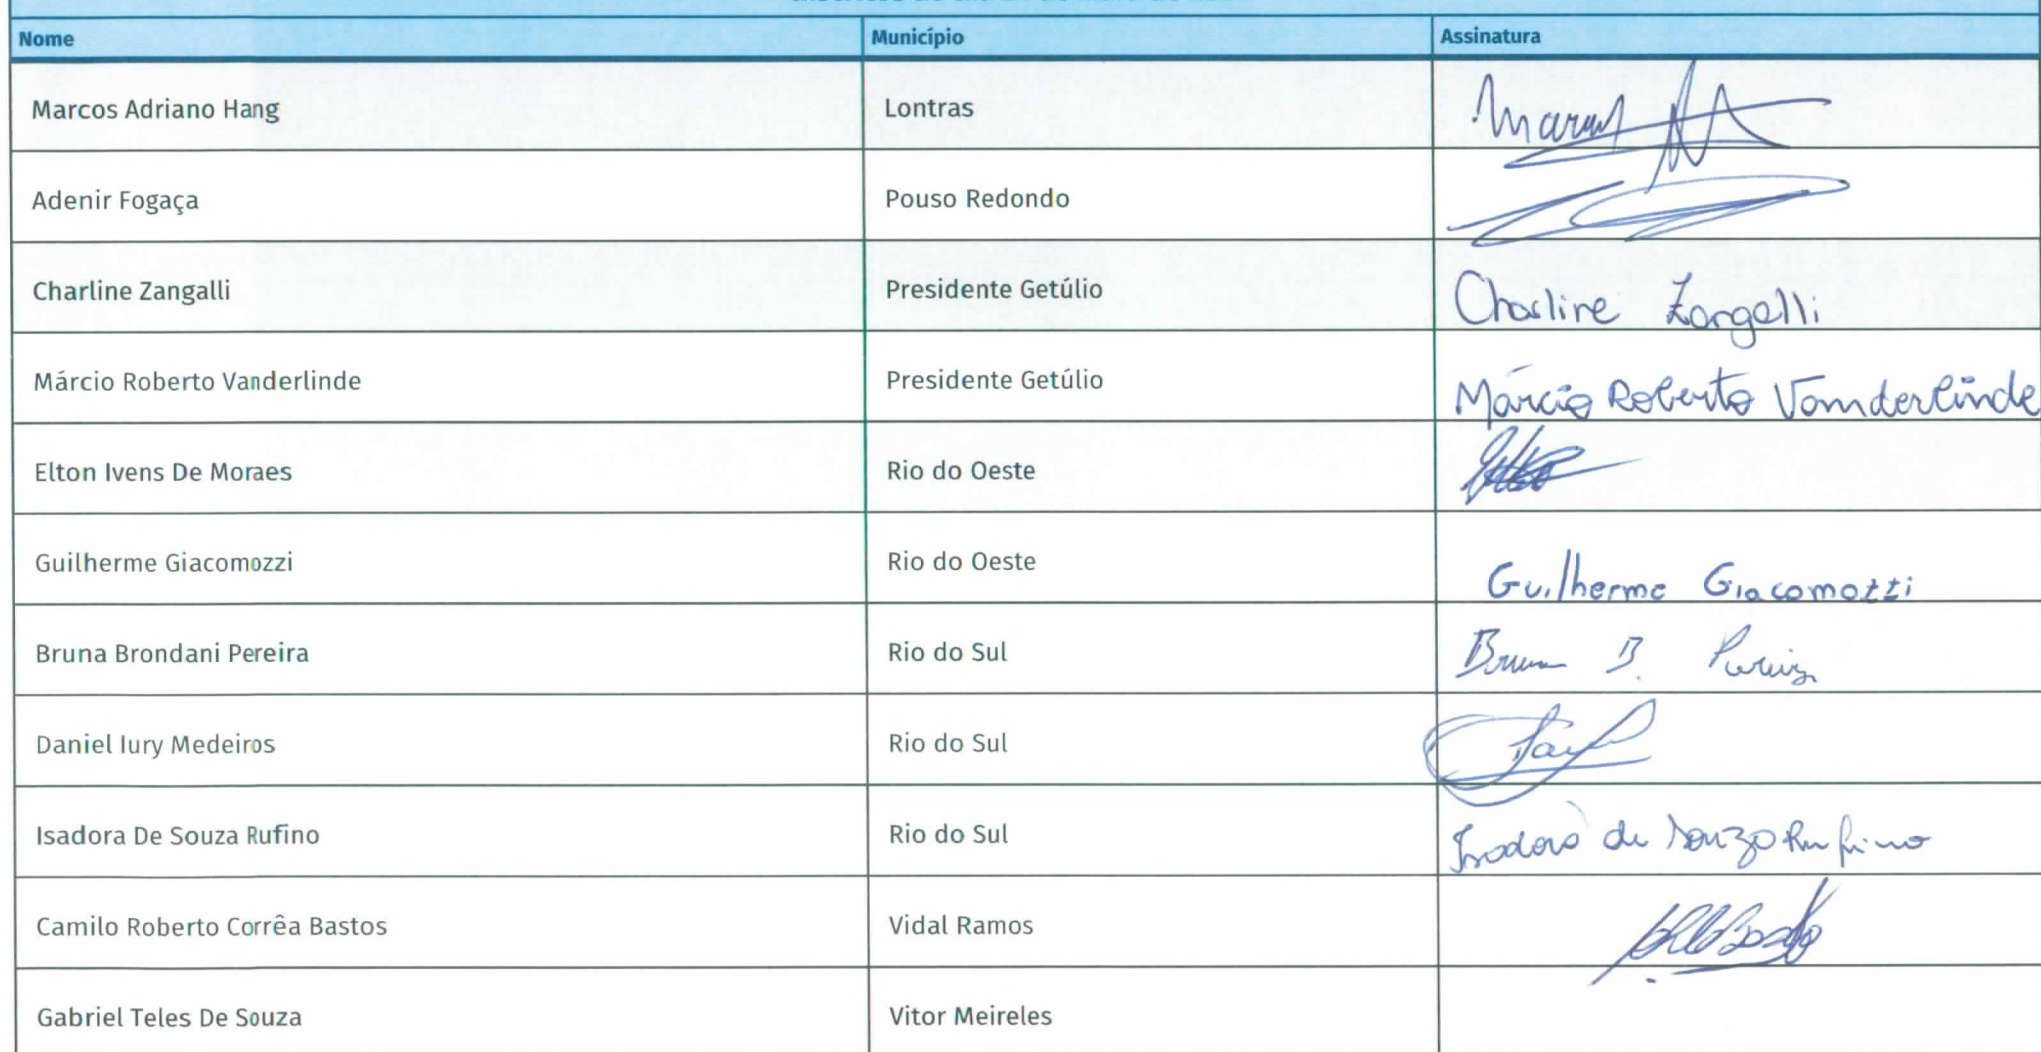 Nome Município Assinatura
Marcos Adriano Hang Lontras
Adenir Fogaça Pouso Redondo
Charline Zangalli Presidente Getúlio Charline Zangalli
Márcio Roberto Vanderlinde Presidente Getúlio Márcio Roberto Vanderlinde
Elton Ivens De Moraes Rio do Oeste
Guilherme Giacomozzi Rio do Oeste Guilherme Giacomozzi
Bruna Brondani Pereira Rio do Sul Bruna B. Pereira
Daniel Iury Medeiros Rio do Sul
Isadora De Souza Rufino Rio do Sul Isadora de Souza Rufino
Camilo Roberto Corrêa Bastos Vidal Ramos
Gabriel Teles De Souza Vitor Meireles